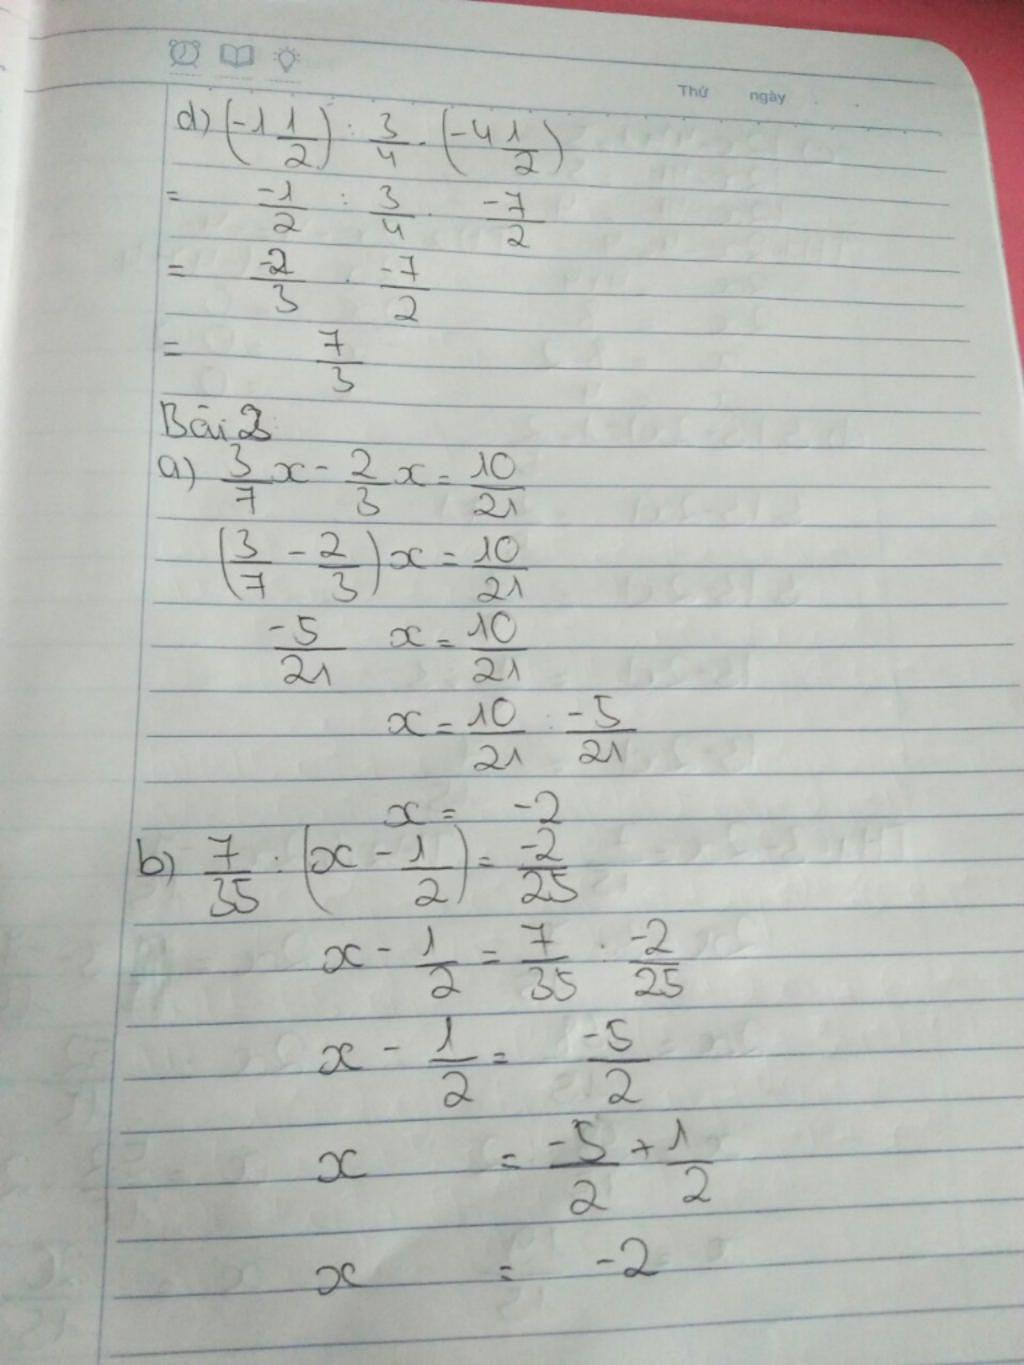 Thứ ngày
d) (-1 1/2) : 3/4 . (-4 1/2)
= -1/2 : 3/4 . -7/2
= -2/3 . -7/2
= 7/3
Bài 2
a) 3/7 x - 2/3 x = 10/21
(3/7 - 2/3) x = 10/21
-5/21 x = 10/21
x = 10/21 : -5/21
x = -2
b) 7/35 : (x - 1/2) = -2/25
x - 1/2 = 7/35 : -2/25
x - 1/2 = -5/2
x = -5/2 + 1/2
x = -2